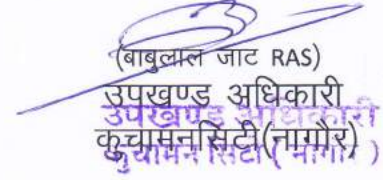 (बाबुलाल जाट RAS)
उपखण्ड अधिकारी
उपखण्ड अधिकारी
कुचामनसिटी(नागौर)
कुचामन सिटी ( नागौर )